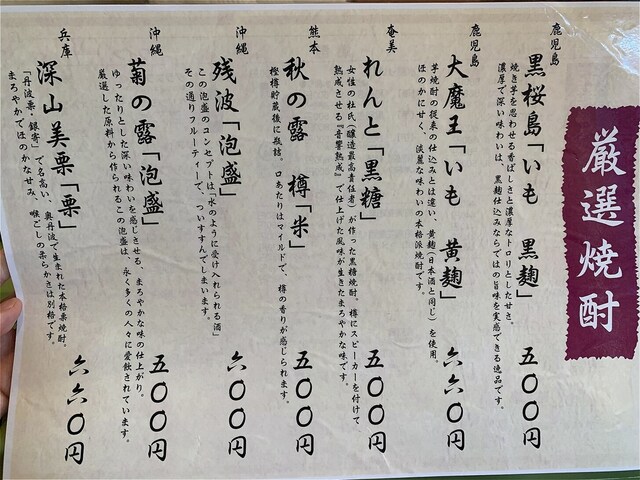 厳選焼酎
鹿児島
黒桜島「いも 黒麹」 五〇〇円
焼き芋を思わせる香ばしさと濃厚なトロリとした甘さ。
濃厚で深い味わいは、黒麹仕込みならではの旨味を実感できる逸品です。
鹿児島
大魔王「いも 黄麹」 六六〇円
芋焼酎の従来の仕込みとは違い、黄麹(日本酒と同じ)を使用。
ほのかに甘く、淡麗な味わいの本格派焼酎です。
奄美
れんと「黒糖」 五〇〇円
女性の杜氏(醸造最高責任者)が作った黒糖焼酎。樽にスピーカーを付けて
熟成させる『音響熟成』で仕上げた風味が生きたまろやかな味です。
熊本
秋の露 樽「米」 五〇〇円
樫樽貯蔵後に瓶詰。口あたりはマイルドで、樽の香りが感じられます。
沖縄
残波「泡盛」 六〇〇円
この泡盛のコンセプトは「水のように受け入れられる酒」
その通りフルーティーで、ついすすんでしまいます。
沖縄
菊の露「泡盛」 五〇〇円
ゆったりとした深い味わいを感じさせる、まろやかな味の仕上がり。
厳選した原料から作られるこの泡盛は、永く多くの人々に愛飲されています。
兵庫
深山美栗「栗」 六六〇円
「丹波栗・銀寄」で名高い、奥丹波で生まれた本格栗焼酎。
まろやかでほのかな甘み、喉ごしの柔らかさは別格です。